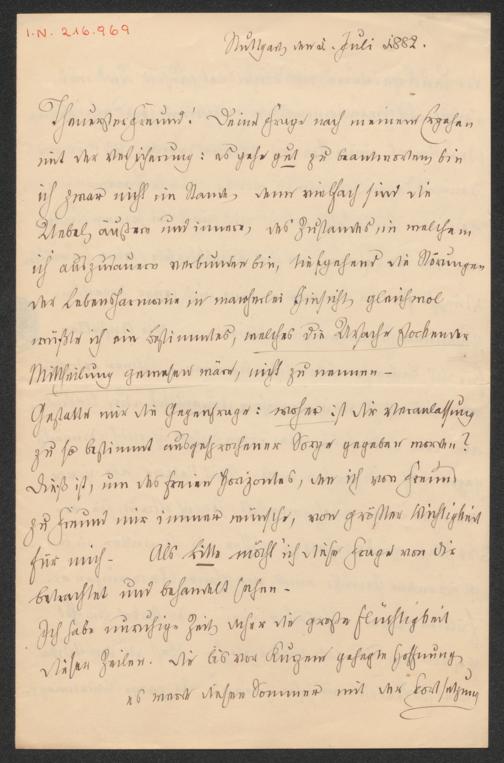 I.N. 216.969
Stuttgart, den 2. Juli 1882.
Theuerster Freund! Deine Frage nach meinem Ergehen
mit der Versicherung: es gehe gut zu beantworten, bin
ich zwar nicht im Stande, denn vielfach sind die
Uebel, äußere und innere, des Zustandes in welchem
ich auszudauern verbunden bin, tiefgehend die Störungen
der Lebensharmonie in mancherlei Hinsicht, gleichwol
wüßte ich ein bestimmtes, welches die Ursache stockender
Mittheilung gewesen wäre, nicht zu nennen –
Gestatte mir die Gegenfrage: woher ist dir Veranlassung
zu so bestimmt ausgesprochener Sorge gegeben worden?
Dieß ist, um des freien Horizontes, den ich von Freund
zu Freund mir immer wünsche, von größter Wichtigkeit
für mich – Als Bitte möcht' ich diese Frage von dir
betrachtet und behandelt sehen –
Ich habe unruhige Zeit, daher die große Flüchtigkeit
dieser Zeilen. Die bis vor Kurzem gehegte Hoffnung,
es werde diesen Sommer mit der Fortsetzung